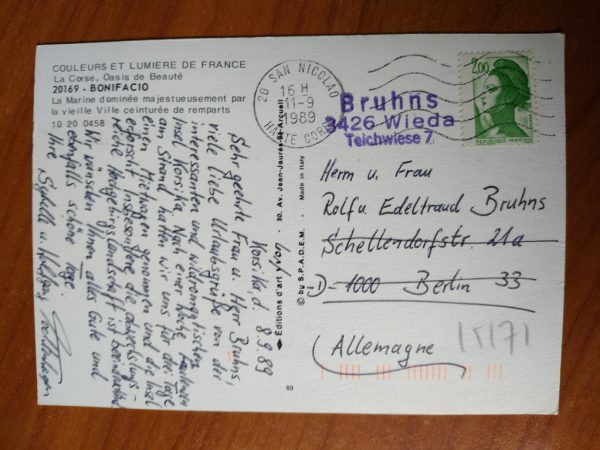 COULEURS ET LUMIERE DE FRANCE
La Corse, Oasis de Beauté
20169 - BONIFACIO
La Marine dominée majestueusement par
la vieille Ville ceinturée de remparts
10 20 0458
20 SAN NICOLAO
16 H
11-9
1989
HAUTE CORSE
2,00
REPUBLIQUE FRANCAISE
Bruhns
3426 Wieda
Teichwiese 7
Korsika, d. 8.9.89
Sehr geehrte Frau u. Herr Bruhns,
viele liebe Urlaubsgrüße von der
interessanten und wildromantischen
Insel Korsika. Nach einer Woche Faulenzen
am Strand hatten wir uns für drei Tage
einen Mietwagen genommen und die Insel
erforscht. Insbesondere die abwechslungs-
reiche Hochgebirgslandschaft ist beeindruckend.
Wir wünschen Ihnen alles Gute und
ebenfalls schöne Tage.
Ihre Sybill u. Wolfgang
Éditions d'art - 30, Av. Jean-Jaurès Arcueil
© by S.P.A.D.E.M. - Made in Italy
89
Herrn u. Frau
Rolf u. Edeltraud Bruhns
Schellendorfstr. 21a
D-1000 Berlin 33
Allemagne
15171